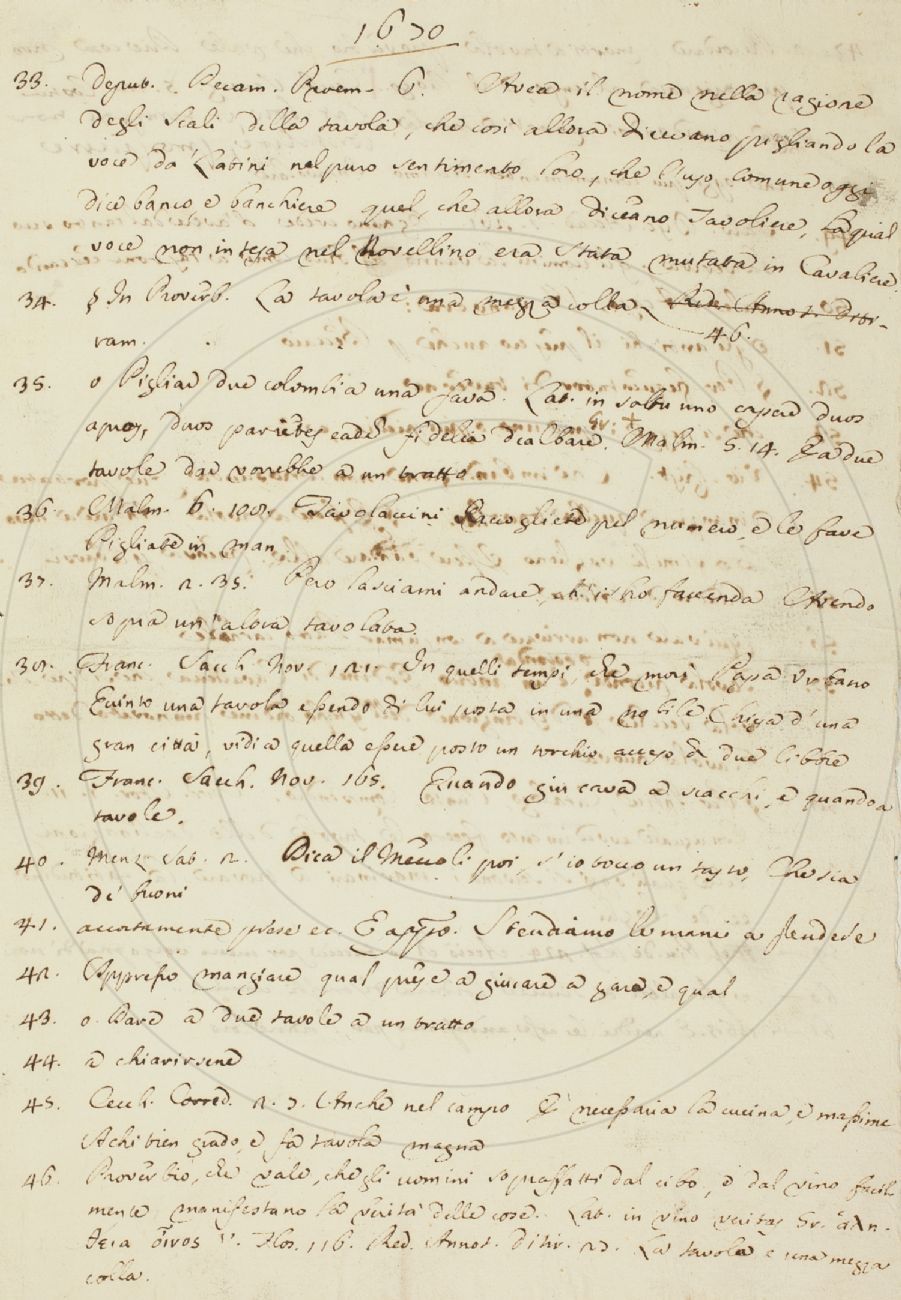 1670
33. Deput. Decam. Proem. 6. Avea il nome nella ragione
degli Scali della tavola, che così allora dicevano pigliando la
voce da' Latini nel puro sentimento loro, che l'uso comune oggi
dice banco e banchiere quel, che allora diceano Tavoliere, La qual
voce non intesa nel Novellino era stata mutata in Cavaliere.
34. § In Proverb. La tavola è una mezza colla. Red. Annot. Ditir-
46.
ram.
35. o Pigliar due colombi a una fava. Lat. in saltu uno capere duos
Gr. +
apros, duos parietes eadē fidelia dealbare. Malm. 5. 14. Fa due
tavole dar vorrebbe a un tratto
36. Malm. 6. 108. Tavolaccini Raccogliete pel numero, e le fave
Pigliate in man
37. Malm. 2. 35. Però lasciami andare, ch' i' ho faccenda Avendo
sopra un' altra tavolata.
38. Franc. Sacch. Nov. 121. In quelli tempi, che morì Papa Urbano
Quinto una tavola essendo di lui posta in una nobile Chiesa d' una
gran città, vidi a quella essere posto un torchio acceso di due libbre
39. Franc. Sacch. Nov. 165. Quando giucava a scacchi, e quando a
tavole.
40. Menz. Sat. 2. Dica il Meccoli poi, s' io tocco un tasto, Che sia
de' buoni
41. accortamente prese ec. E appo. Stendiamo le mani a stendere
42. Appresso mangiare qual prese a giucare a zara, e qual
43. o Dare a due tavole a un tratto
44. a chiarirsene
45. Cecch. Corred. 2. 7. Anche nel campo È necessaria la cucina, e massime
A chi tien grado, e fa tavola magna
46. Proverbio, che vale, che gli uomini sopraffatti dal cibo, e dal vino facil-
mente manifestano la verità delle cose. Lat. in vino veritas Gr. ἀλή-
θεια οἶνος v. Flos. 116. Red. Annot. Ditir. 27. La tavola è una mezza
colla.